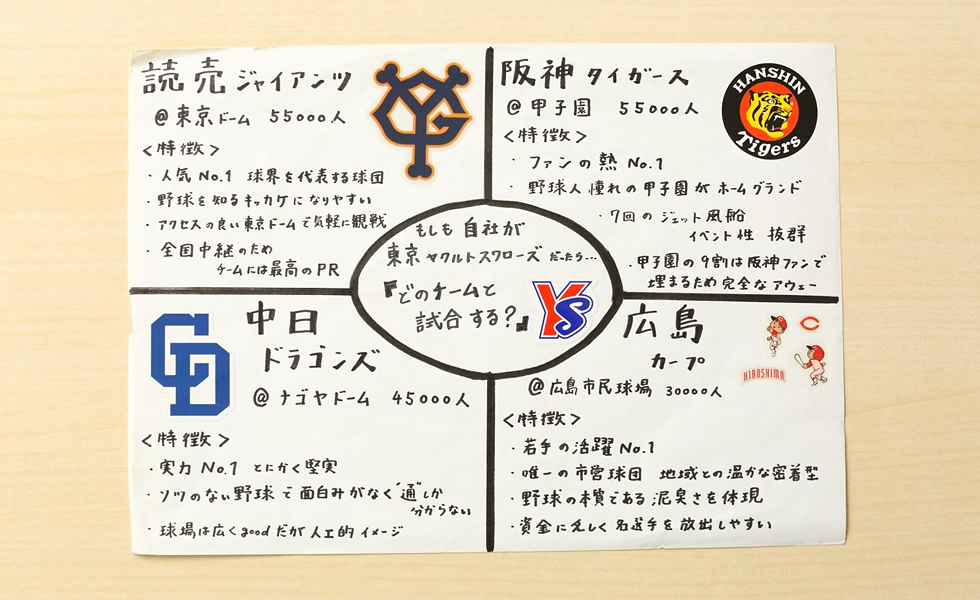 読売 ジャイアンツ
@東京ドーム 55000人
<特徴>
・人気 No.1 球界を代表する球団
・野球を知るキッカケになりやすい
・アクセスの良い東京ドームで気軽に観戦
・全国中継のため
チームには最高のPR
阪神 タイガース
@甲子園 55000人
<特徴>
・ファンの熱 No.1
・野球人憧れの甲子園がホームグランド
・7回のジェット風船
イベント性 抜群
・甲子園の9割は阪神ファンで
埋まるため完全なアウェー
HANSHIN
Tigers
もしも自社が
東京ヤクルトスワローズだったら…
『どのチームと
試合する?』
YS
中日
ドラゴンズ
@ナゴヤドーム 45000人
<特徴>
・実力 No.1 とにかく堅実
・ソツのない野球で面白みがなく"通"しか
分からない
・球場は広くgoodだが人工的イメージ
広島
カープ
@広島市民球場 30000人
HIROSHIMA
<特徴>
・若手の活躍 No.1
・唯一の市営球団 地域との温かな密着型
・野球の本質である泥臭さを体現
・資金に乏しく名選手を放出しやすい